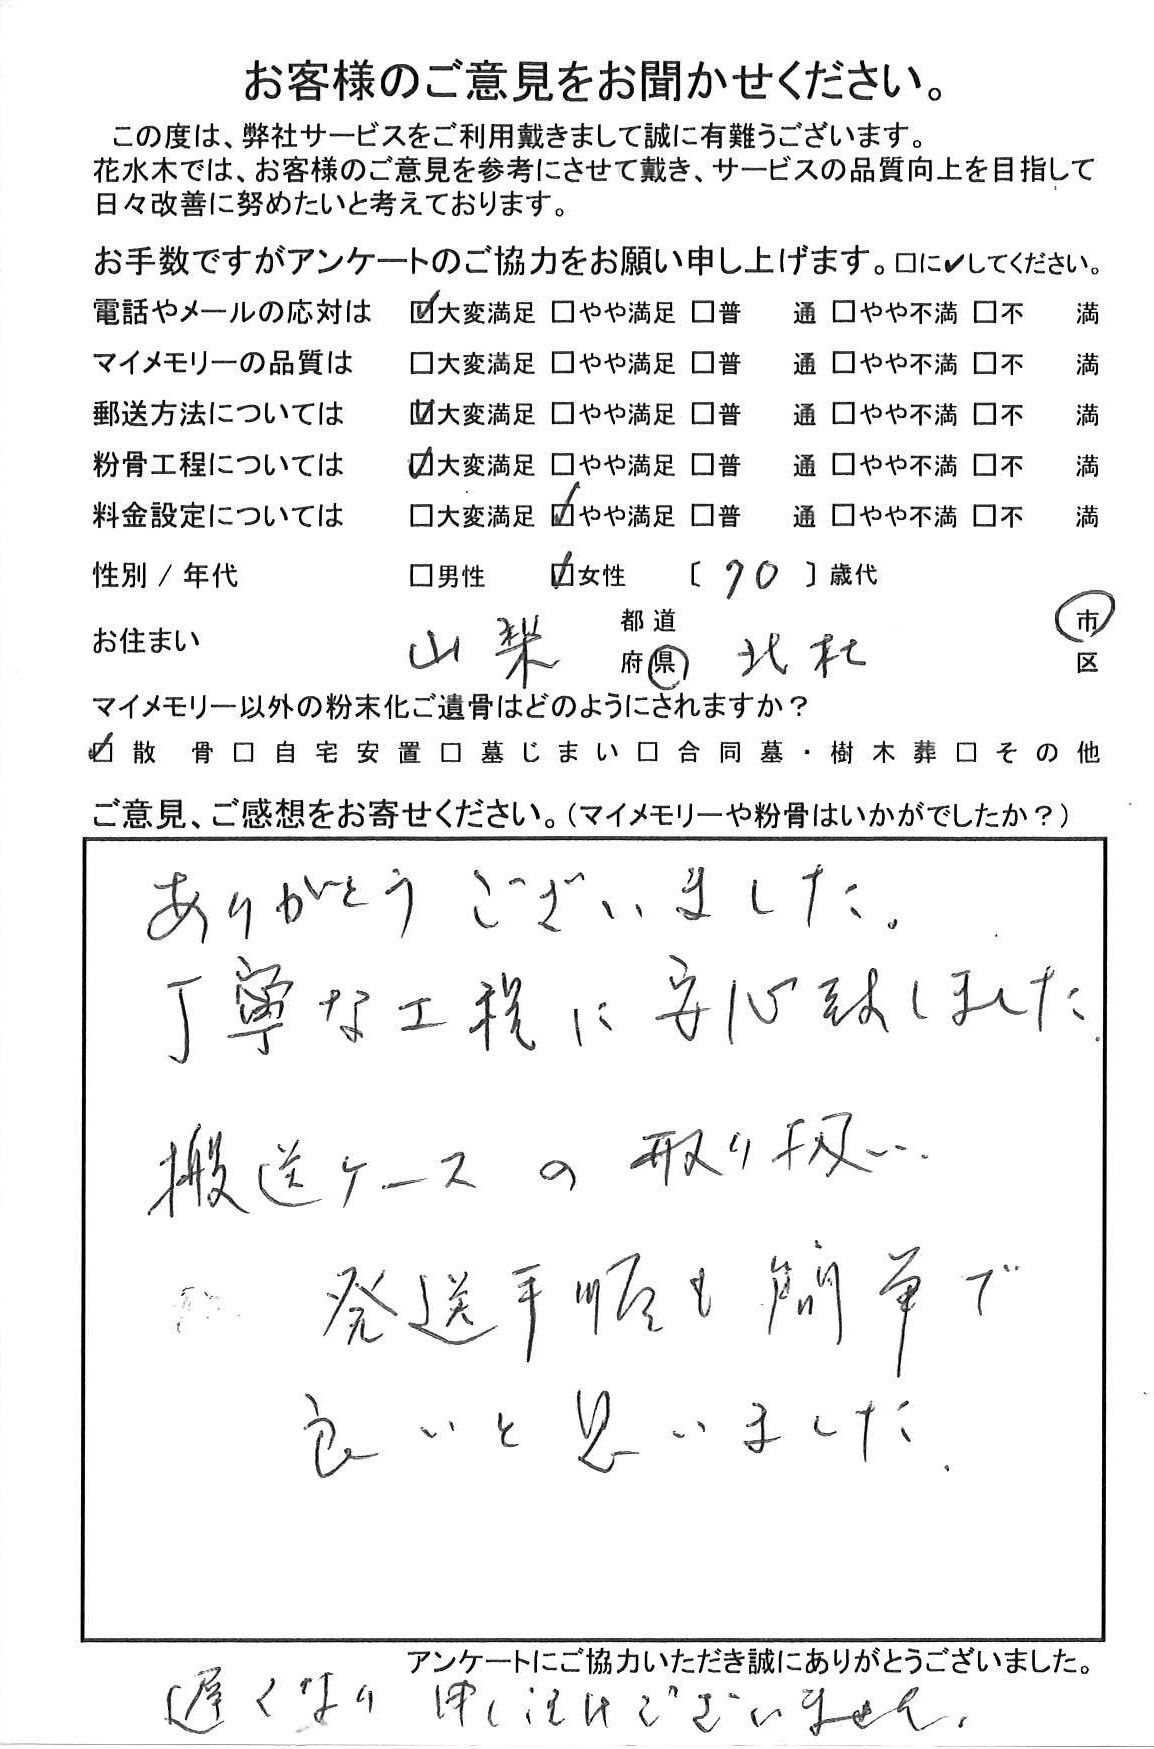 お客様のご意見をお聞かせください。
この度は、弊社サービスをご利用戴きまして誠に有難うございます。
花水木では、お客様のご意見を参考にさせて戴き、サービスの品質向上を目指して
日々改善に努めたいと考えております。
お手数ですがアンケートのご協力をお願い申し上げます。□に✔してください。
電話やメールの応対は ☑大変満足 □やや満足 □普 通 □やや不満 □不 満
マイメモリーの品質は □大変満足 □やや満足 □普 通 □やや不満 □不 満
郵送方法については ☑大変満足 □やや満足 □普 通 □やや不満 □不 満
粉骨工程については ☑大変満足 □やや満足 □普 通 □やや不満 □不 満
料金設定については □大変満足 ☑やや満足 □普 通 □やや不満 □不 満
性別 / 年代 □男性 ☑女性 〔 70 〕歳代
お住まい 山梨 都道府県 北杜 市区
マイメモリー以外の粉末化ご遺骨はどのようにされますか？
☑散 骨 □自宅安置 □墓じまい □合同墓・樹木葬 □その他
ご意見、ご感想をお寄せください。（マイメモリーや粉骨はいかがでしたか？）
ありがとうございました。
丁寧な工程に安心致しました.
搬送ケースの取り扱い.
発送手順も簡単で
良いと思いました.
アンケートにご協力いただき誠にありがとうございました。
遅くなり申し訳けございません.